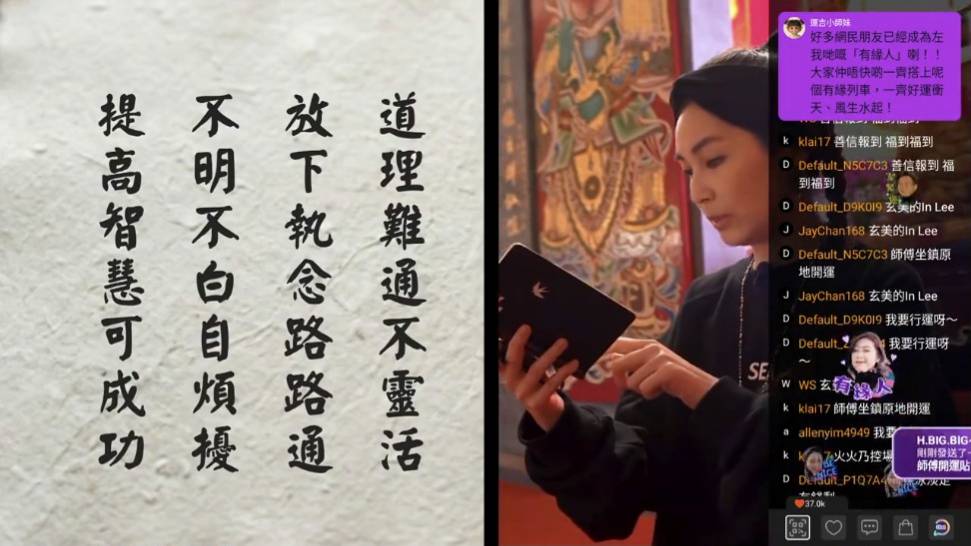 道理難通不靈活
放下執念路路通
不明不白自煩擾
提高智慧可成功
SE
運吉小師妹
好多網民朋友已經成為左
我哋嘅「有緣人」喇！！
大家仲唔快啲一齊搭上呢
個有緣列車，一齊好運衝
天、風生水起！
k klai17 善信報到 福到福到
D Default_N5C7C3 善信報到 福
到福到
D Default_D9K0I9 玄美的In Lee
J JayChan168 玄美的In Lee
D Default_N5C7C3 師傅坐鎮原
地開運
J JayChan168 玄美的In Lee
D Default_D9K0I9 我要行運呀～
D Default_ 我要行運呀
～
W WS 玄
有緣人
k klai17 師傅坐鎮原地開運
a allenyim4949 我要
H.BIG.BIG
剛剛發送了
師傅開運貼
k 火火乃控場
D Default_P1Q7A4
37.0k